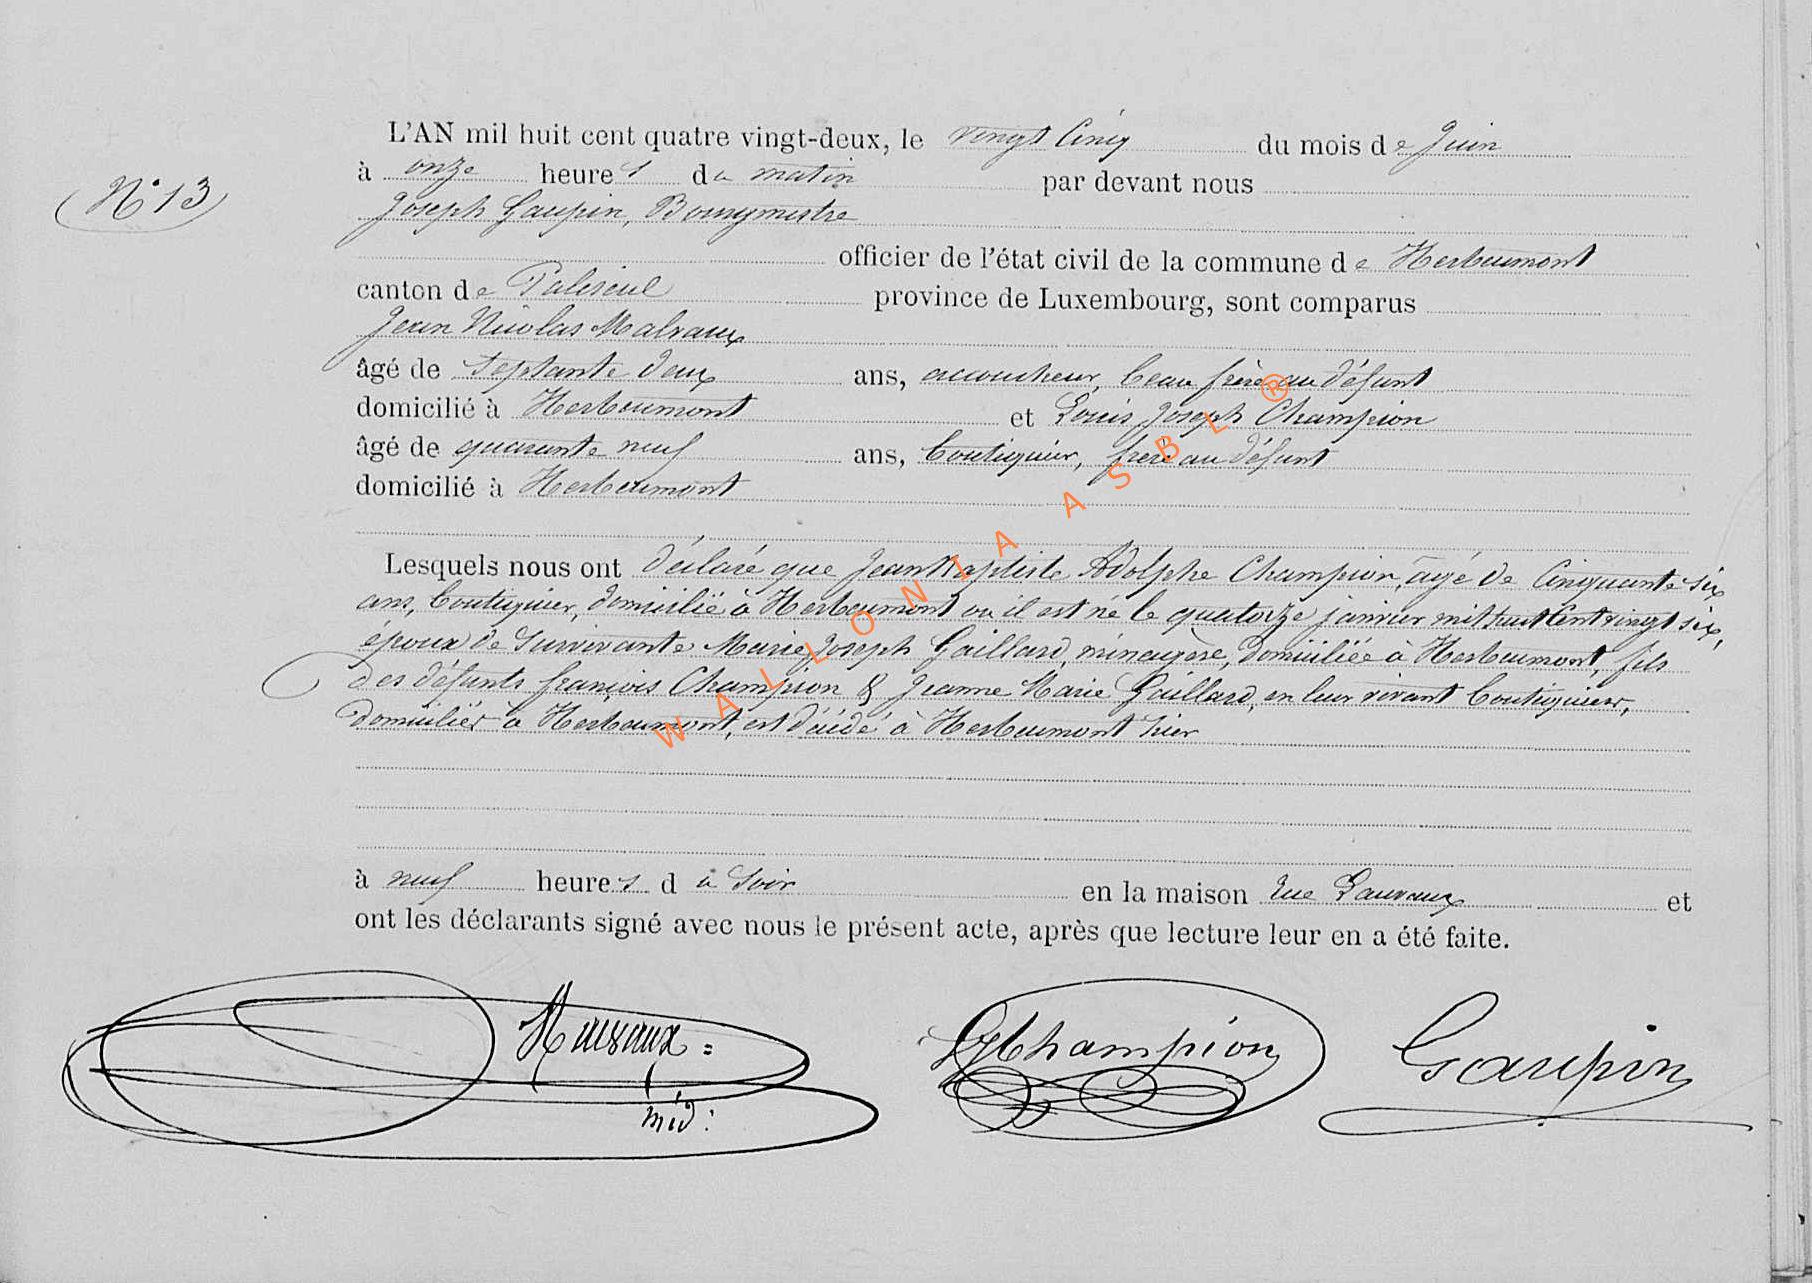 N° 13
L'AN mil huit cent quatre vingt-deux, le vingt Cinq du mois de Juin
à onze heures du matin par devant nous
Joseph Gaupin, Bourgmestre
officier de l'état civil de la commune de Herbeumont
canton de Paliseul province de Luxembourg, sont comparus
Jean Nicolas Malvaux
âgé de septante deux ans, accoucheur, beau frère au défunt
domicilié à Herbeumont et Louis Joseph Champion
âgé de quarante neuf ans, boutiquier, frère au défunt
domicilié à Herbeumont
Lesquels nous ont déclaré que Jean Baptiste Adolphe Champion, âgé de Cinquante six
ans, boutiquier, domicilié à Herbeumont où il est né le quatorze janvier mil huit Cent vingt six,
époux de survivante Marie Joseph Gaillard, ménagère, domiciliée à Herbeumont, fils
des défunts françois Champion & Jeanne Marie Gaillard, en leur vivant boutiquiers,
domiciliés à Herbeumont, est décédé à Herbeumont hier
à neuf heures du soir en la maison rue et
ont les déclarants signé avec nous le présent acte, après que lecture leur en a été faite.
méd:
Champion
Gaupin
WALLONIA ASBL ®